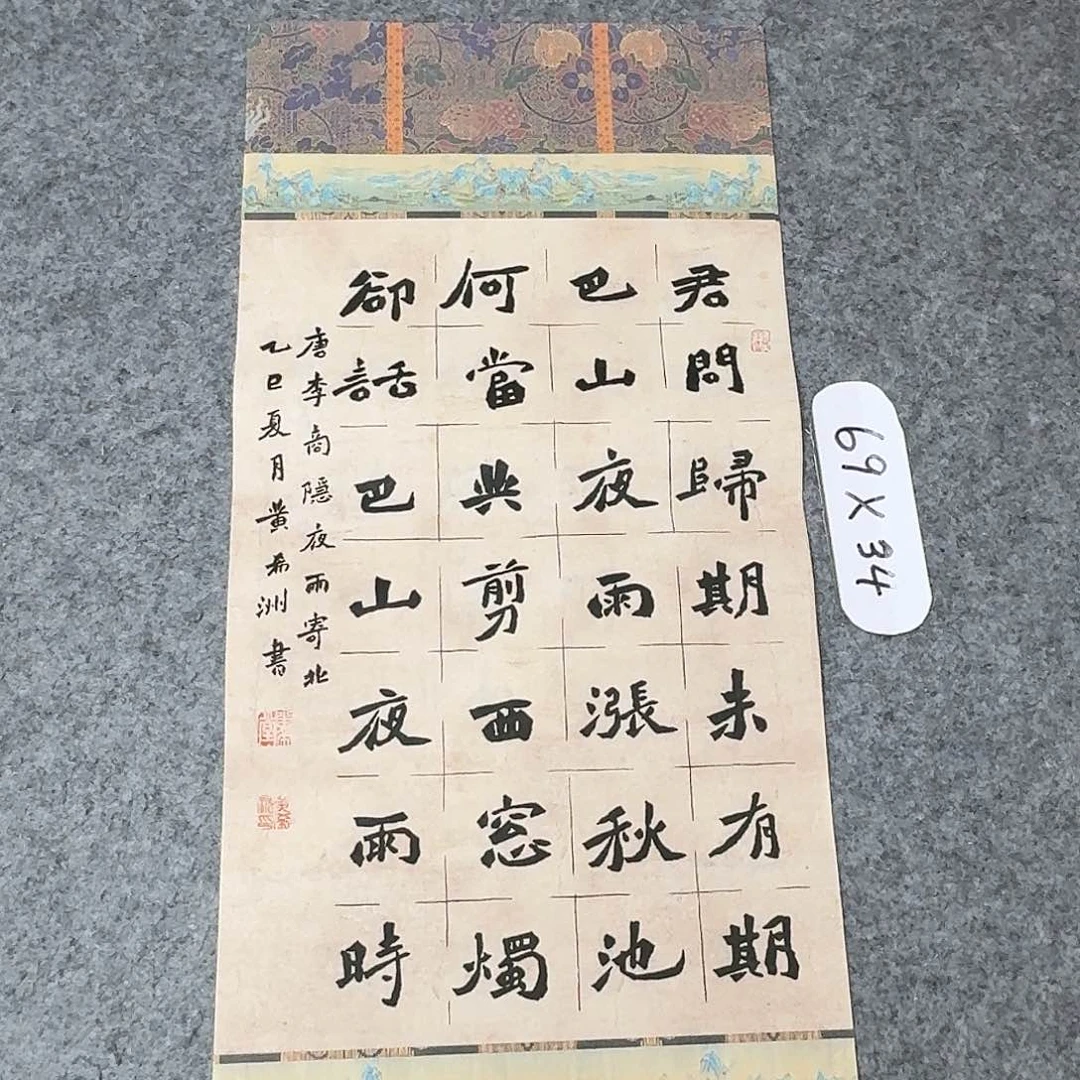 君問歸期未有期
巴山夜雨漲秋池
何當典剪西窓燭
卻話巴山夜雨時
唐李商隱夜雨寄北
乙巳夏月黄希洲書
69X34